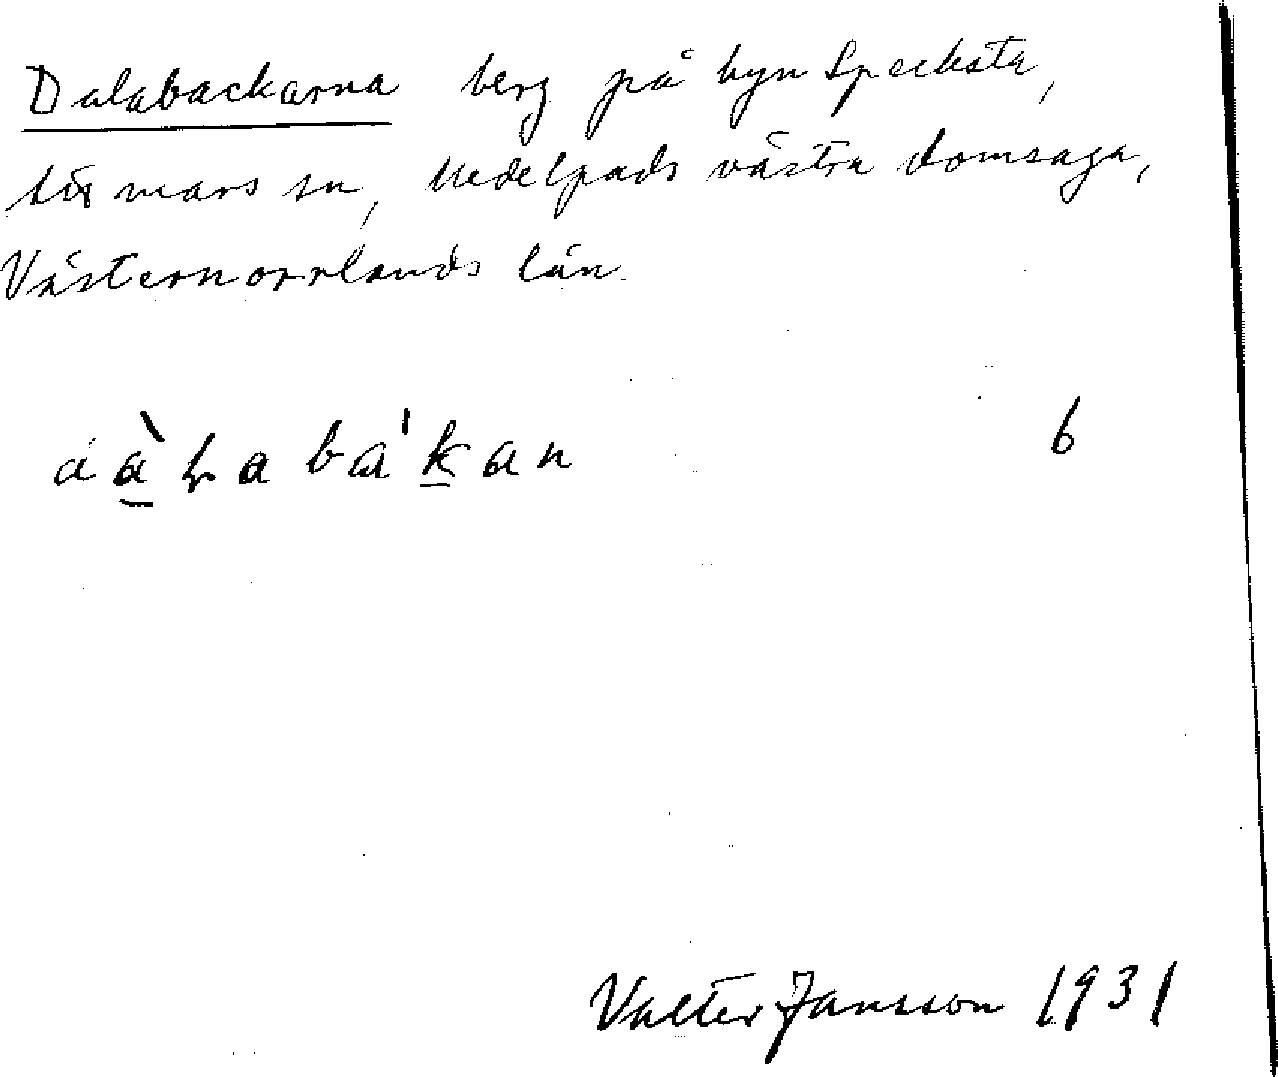 Dalabackarna berg på byn Specksta,
Tuna sn, Medelpads västra domsaga,
Västernorrlands län
6
Valter Jansson 1931